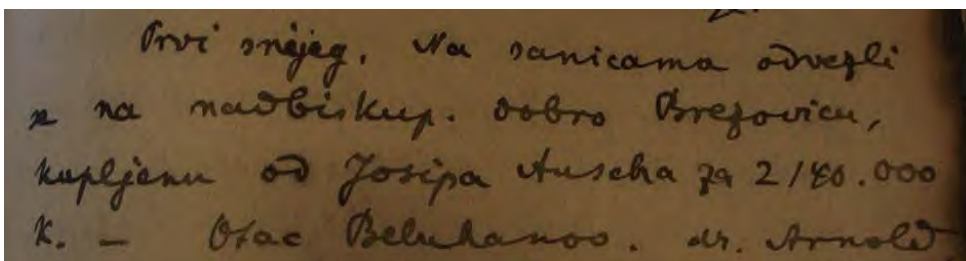 Prvi snijeg. Na sanicama odvezli
se na nadbiskup. dobro Brezovicu,
kupljenu od Josipa Auscha za
K. – Otac dr. Arnold